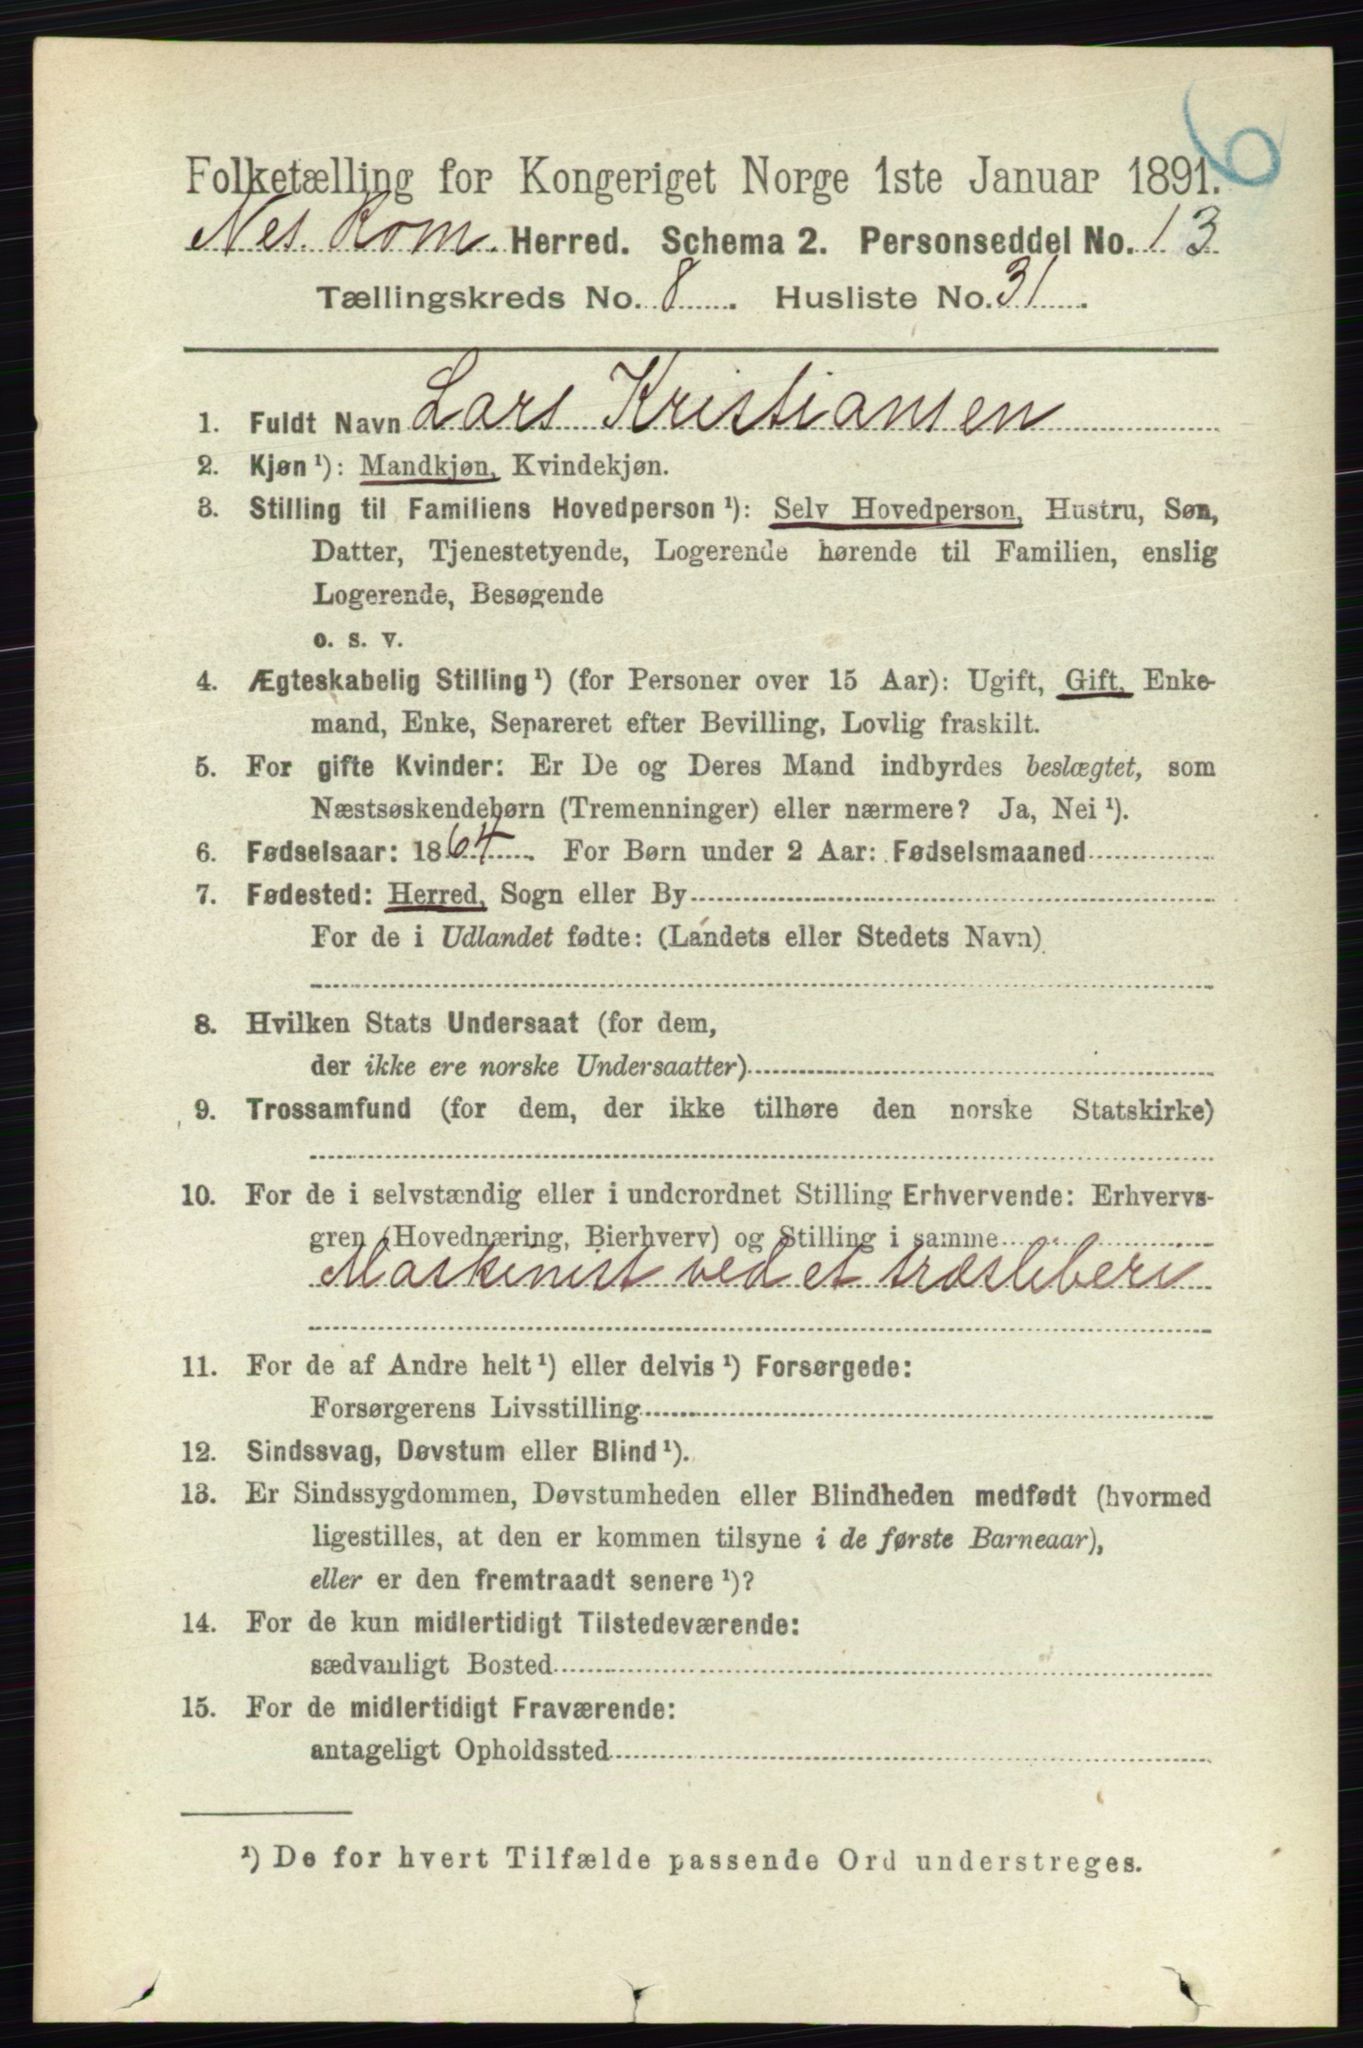 6
Folketælling for Kongeriget Norge 1ste Januar 1891.
Nes. Rom. Herred. Schema 2. Personseddel No. 13
Tællingskreds No. 8. Husliste No. 31.
1. Fuldt Navn Lars Kristiansen
2. Kjøn ¹): Mandkjøn, Kvindekjøn.
3. Stilling til Familiens Hovedperson ¹): Selv Hovedperson, Hustru, Søn,
Datter, Tjenestetyende, Logerende hørende til Familien, enslig
Logerende, Besøgende
o. s. v.
4. Ægteskabelig Stilling ¹) (for Personer over 15 Aar): Ugift, Gift, Enke-
mand, Enke, Separeret efter Bevilling, Lovlig fraskilt.
5. For gifte Kvinder: Er De og Deres Mand indbyrdes beslægtet, som
Næstsøskendebørn (Tremenninger) eller nærmere? Ja, Nei ¹).
6. Fødselsaar: 1864. For Børn under 2 Aar: Fødselsmaaned
7. Fødested: Herred, Sogn eller By
For de i Udlandet fødte: (Landets eller Stedets Navn)
8. Hvilken Stats Undersaat (for dem,
der ikke ere norske Undersaatter)
9. Trossamfund (for dem, der ikke tilhøre den norske Statskirke)
10. For de i selvstændig eller i underordnet Stilling Erhvervende: Erhvervs-
gren (Hovednæring, Bierhverv) og Stilling i samme
Maskinist ved et træsliberi
11. For de af Andre helt ¹) eller delvis ¹) Forsørgede:
Forsørgerens Livsstilling
12. Sindssvag, Døvstum eller Blind ¹).
13. Er Sindssygdommen, Døvstumheden eller Blindheden medfødt (hvormed
ligestilles, at den er kommen tilsyne i de første Barneaar),
eller er den fremtraadt senere ¹)?
14. For de kun midlertidigt Tilstedeværende:
sædvanligt Bosted
15. For de midlertidigt Fraværende:
antageligt Opholdssted
¹) De for hvert Tilfælde passende Ord understreges.